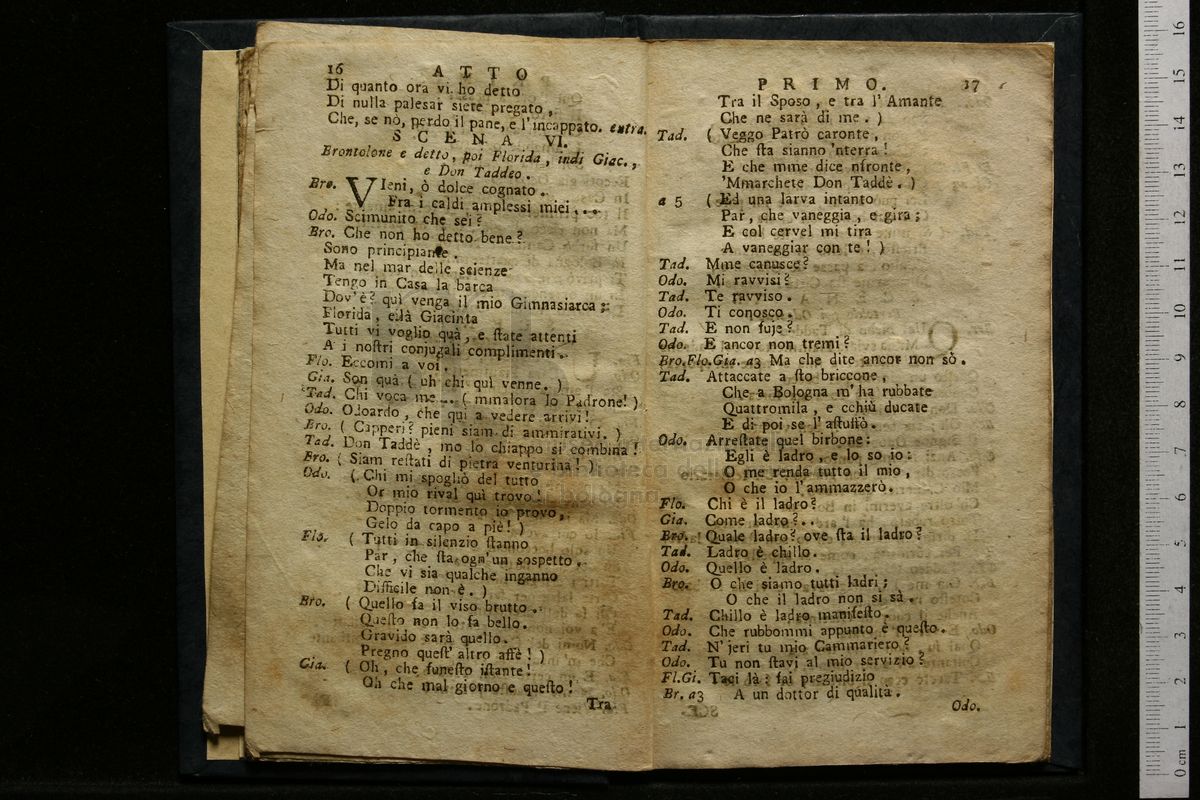 16 ATTO
Di quanto ora vi ho detto
Di nulla palesar siete pregato,
Che, se nò, perdo il pane, e l'incappato. entra.
SCENA VI.
Brontolone e detto, poi Florida, indi Giac.,
e Don Taddeo.
Bro. VIeni, ò dolce cognato.
Fra i caldi amplessi miei...
Odo. Scimunito che sei?
Bro. Che non ho detto bene?
Sono principiante.
Ma nel mar delle scienze
Tengo in Casa la barca
Dov'è? quì venga il mio Gimnasiarca;
Florida, e là Giacinta
Tutti vi voglio quà, e state attenti
A i nostri conjugali complimenti.
Flo. Eccomi a voi.
Gia. Son quà (uh chi quì venne.)
Tad. Chi voca me... (mmalora lo Padrone!)
Odo. Odoardo, che qui a vedere arrivi!
Bro. (Capperi? pieni siam di ammirativi.)
Tad. Don Taddè, mo lo chiappo si combina!
Bro. (Siam restati di pietra venturina!)
Odo. (Chi mi spogliò del tutto
Or mio rival quì trovo!
Doppio tormento io provo,
Gelo da capo a piè!)
Flo. (Tutti in silenzio stanno
Par, che sta ogn'un sospetto.
Che vi sia qualche inganno
Difficile non è.)
Bro. (Quello fa il viso brutto.
Questo non lo fa bello.
Gravido sarà quello.
Pregno quest' altro affè!)
Gia. (Oh, che funesto istante!
Oh che mal giorno e questo!
Tra
PRIMO. 17
Tra il Sposo, e tra l'Amante
Che ne sarà di me.)
Tad. (Veggo Patrò caronte,
Che sta sianno 'nterra!
E che mme dice nfronte,
'Mmarchete Don Taddè.)
a 5 (Ed una larva intanto
Par, che vaneggia, e gira;
E col cervel mi tira
A vaneggiar con te!)
Tad. Mme canusce?
Odo. Mi ravvisi?
Tad. Te ravviso.
Odo. Ti conosco.
Tad. E non fuje?
Odo. E ancor non tremi?
Bro.Flo.Gia. a3 Ma che dite ancor non sò.
Tad. Attaccate a sto briccone,
Che a Bologna m'ha rubbate
Quattromila, e cchiù ducate
E di poi se l'astuffò.
Odo. Arrestate quel birbone:
Egli è ladro, e lo so io:
O me renda tutto il mio,
O che io l'ammazzerò.
Flo. Chi è il ladro?
Gia. Come ladro?..
Bro. Quale ladro? ove sta il ladro?
Tad. Ladro è chillo.
Odo. Quello è ladro.
Bro. O che siamo tutti ladri;
O che il ladro non si sà.
Tad. Chillo è ladro manifesto.
Odo. Che rubbommi appunto è questo.
Tad. N'jeri tu mio Cammariero?
Odo. Tu non stavi al mio servizio?
Fl.Gi. Taci là: fai pregiudizio
Br. a3 A un dottor di qualità.
Odo.